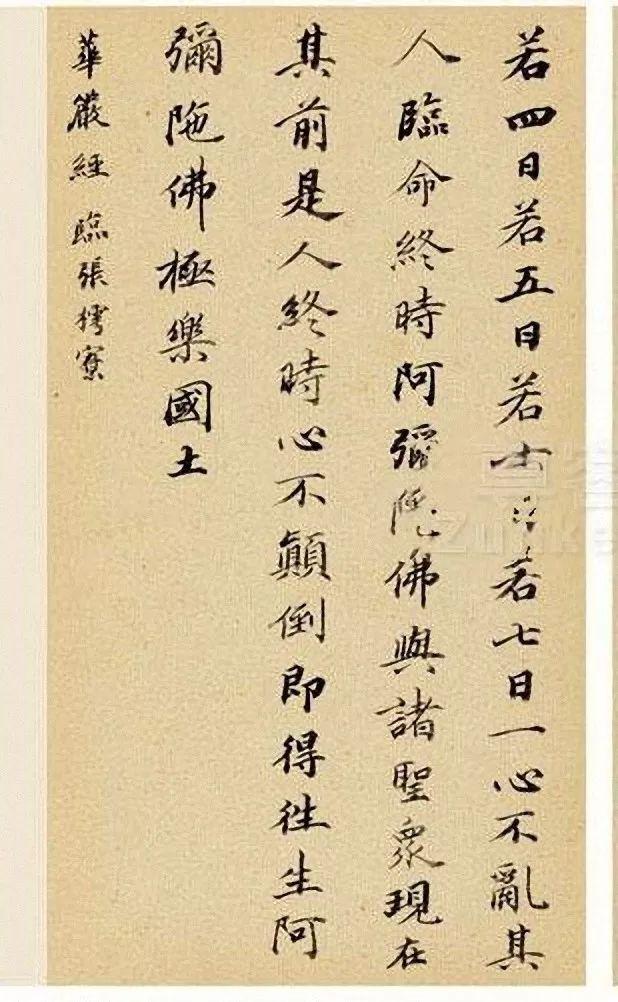 若四日若五日若六日若七日一心不亂其
人臨命終時阿彌陀佛與諸聖衆現在
其前是人終時心不顛倒即得往生阿
彌陁佛極樂國土
華嚴經 臨張樗寮